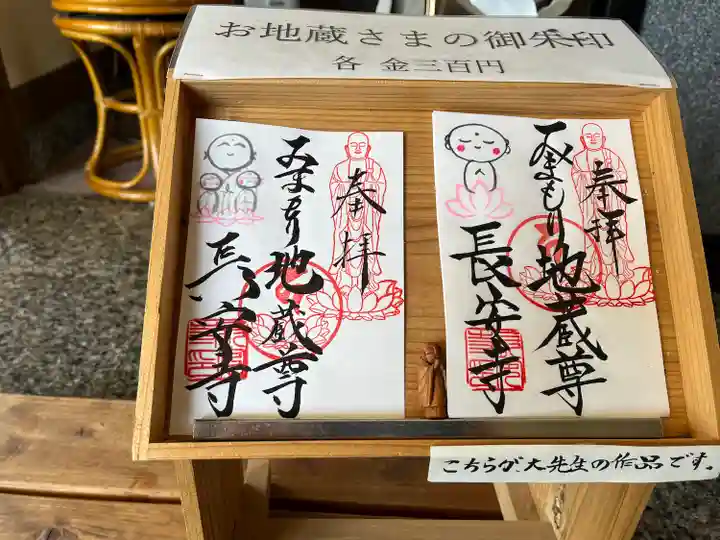 お地蔵さまの御朱印
各 金三百円
奉拝
おまもり地蔵尊
長安寺
奉拝
おまもり地蔵尊
長安寺
こちらが大先生の作品です。